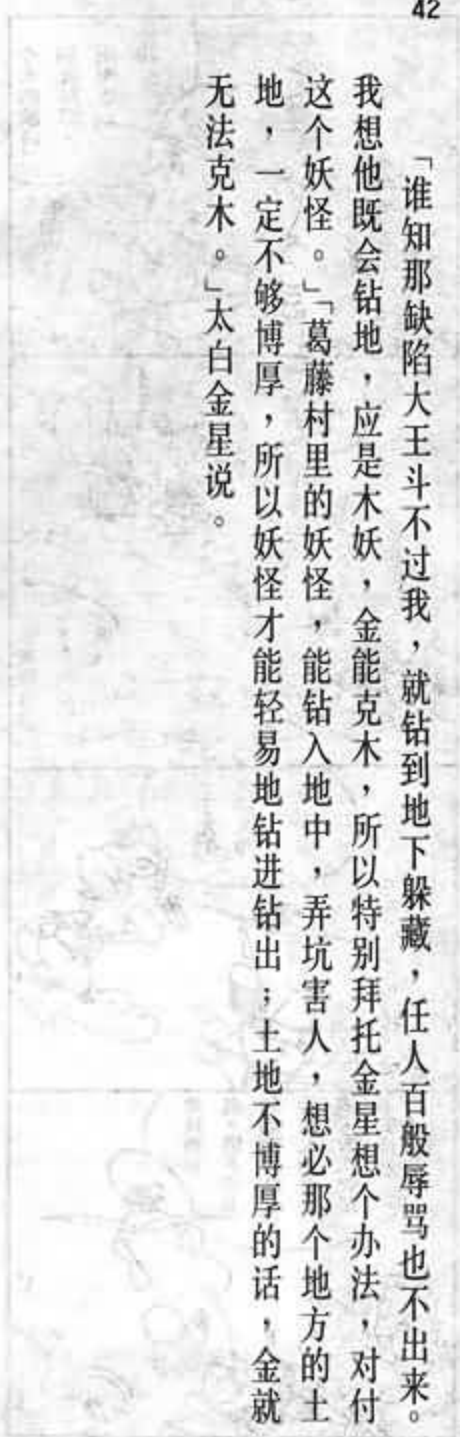 42
「谁知那缺陷大王斗不过我，就钻到地下躲藏，任人百般辱骂也不出来。
我想他既会钻地，应是木妖，金能克木，所以特别拜托金星想个办法，对付
这个妖怪。」「葛藤村里的妖怪，能钻入地中，弄坑害人，想必那个地方的土
地，一定不够博厚，所以妖怪才能轻易地钻进钻出；土地不博厚的话，金就
无法克木。」太白金星说。